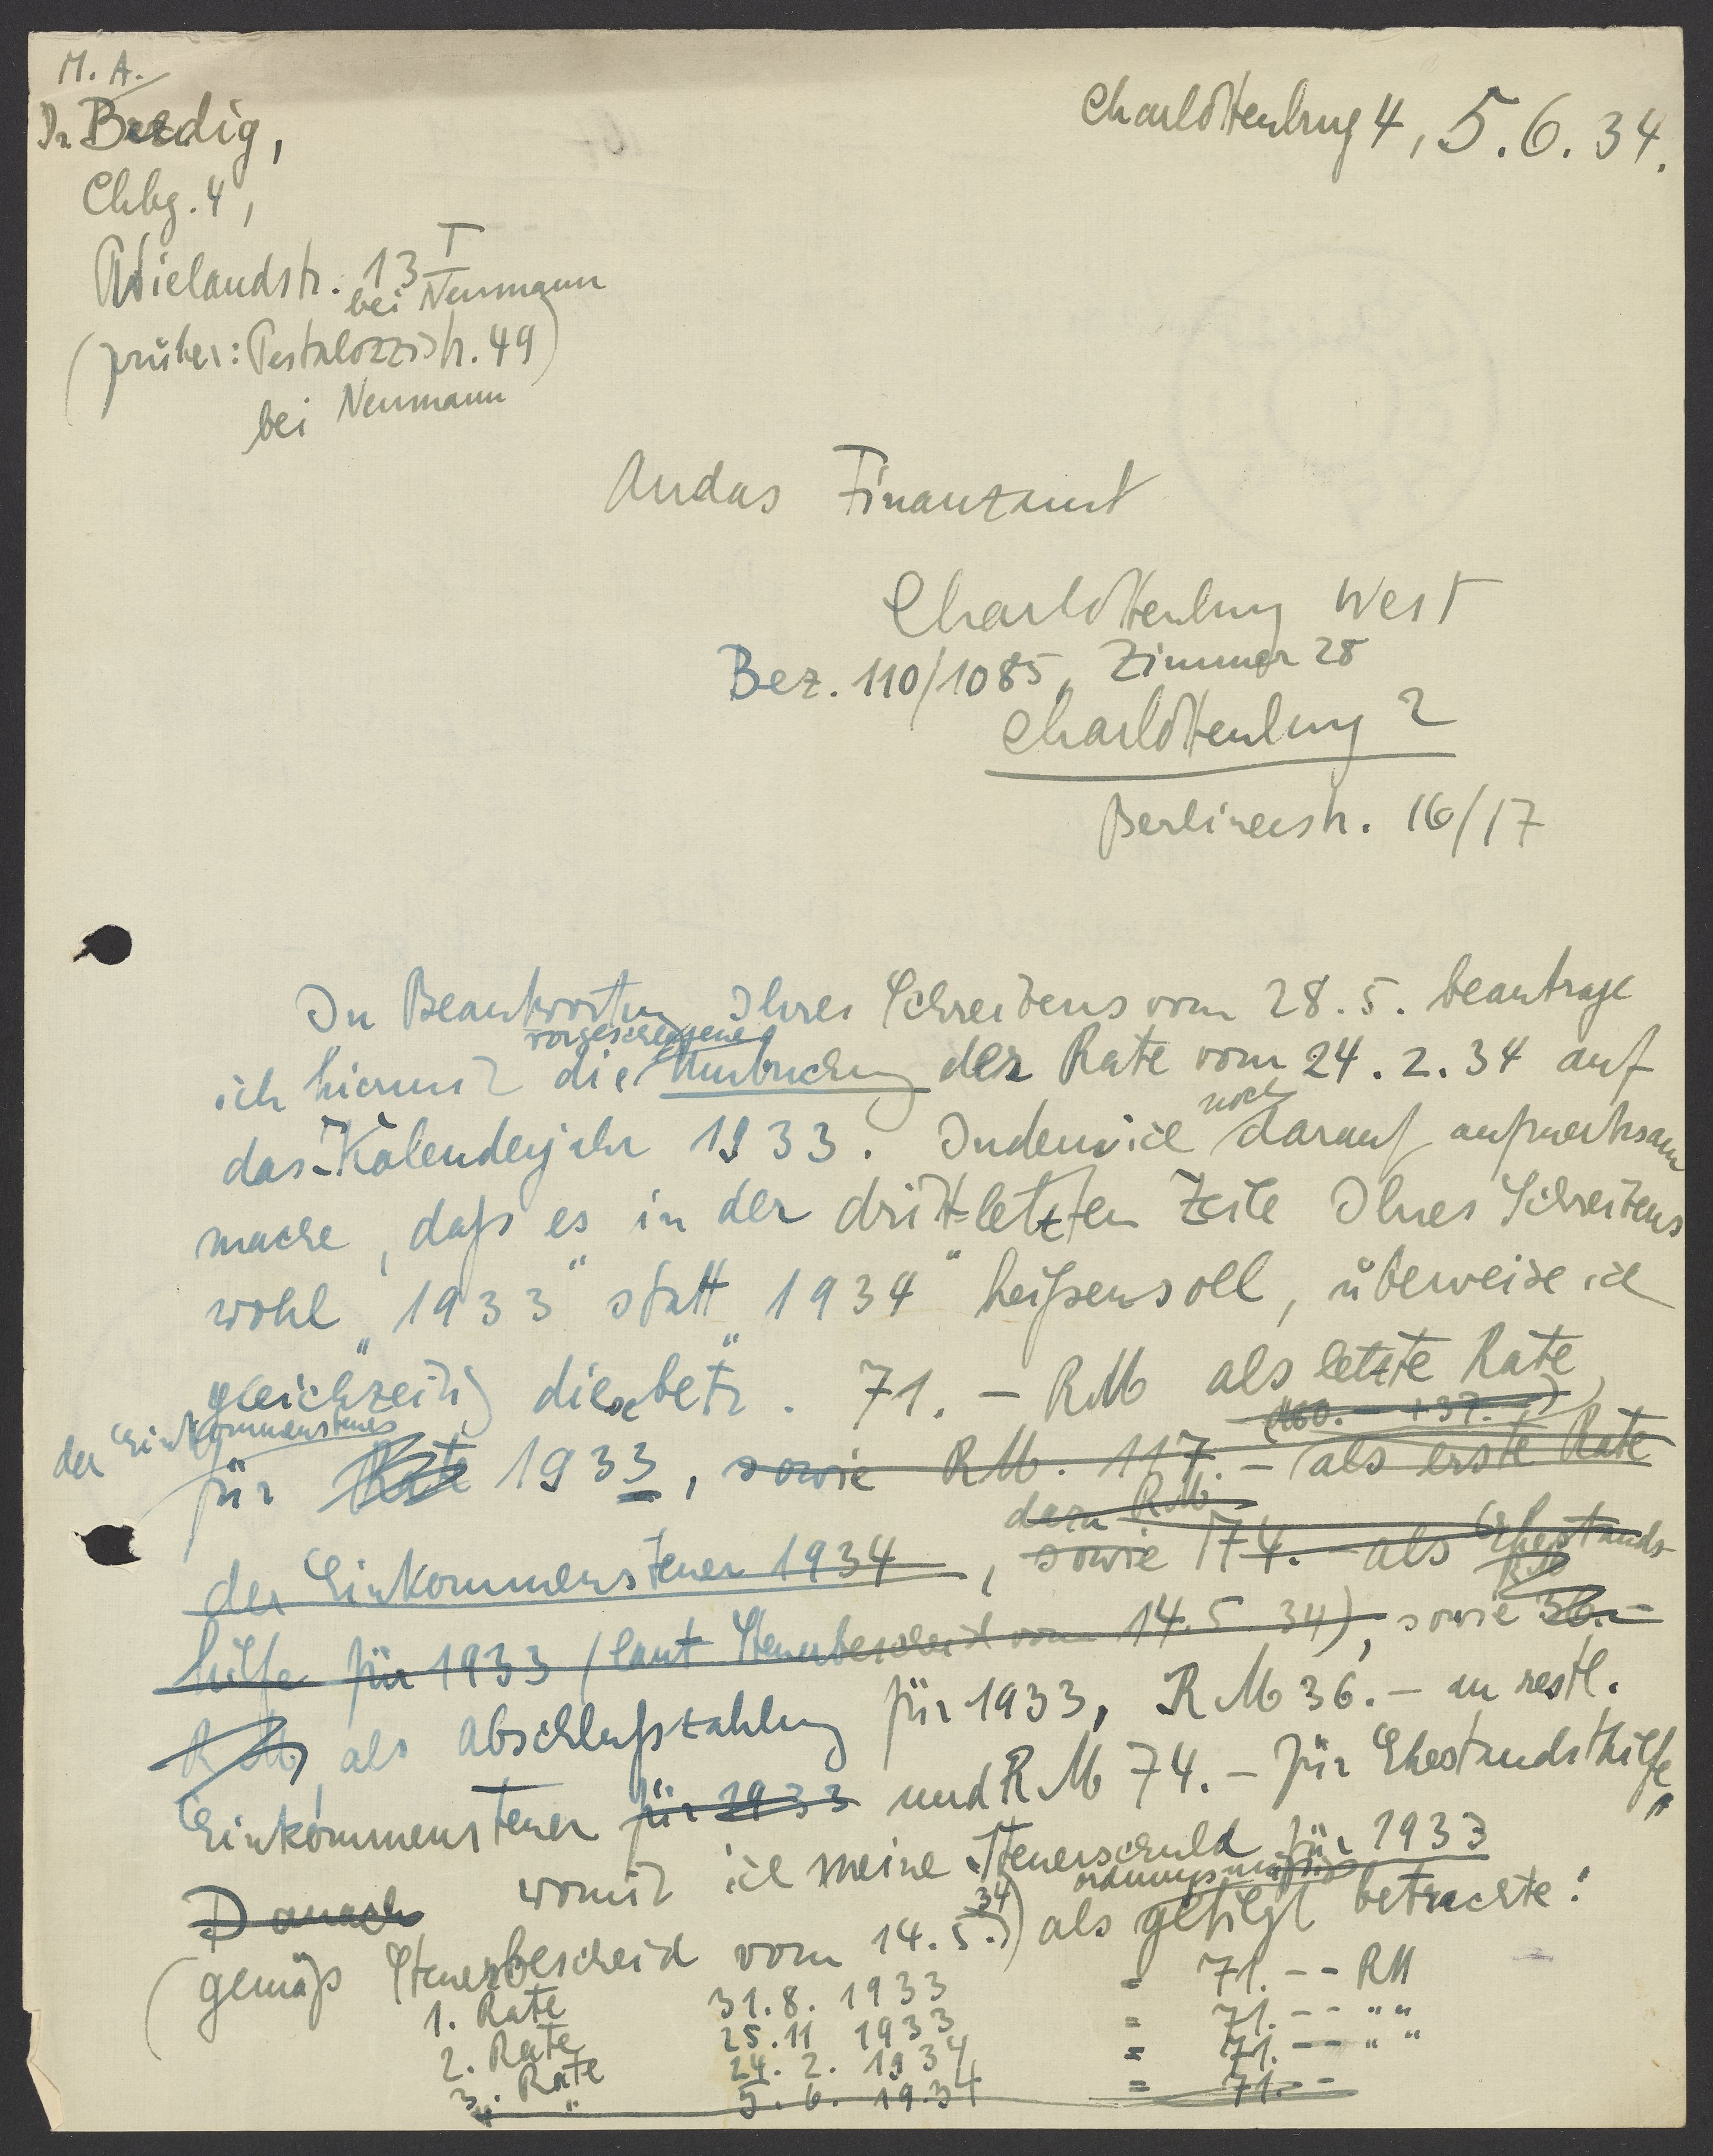 M. A.
Dr. Bredig,
Chbg. 4,
Wielandstr. 13 I
bei Neumann
(früher: Pestalozzistr. 49)
bei Neumann
Charlottenburg 4, 5. 6. 34.
An das Finanzamt
Charlottenburg West
Bez. 110/1085, Zimmer 28
Charlottenburg 2
Berlinerstr. 16/17
In Beantwortung Ihres Schreibens vom 28. 5. beantrage
vorgeschlagene
ich hiermit die Umbuchung der Rate vom 24. 2. 34 auf
noch
das Kalenderjahr 1933. Indem ich darauf aufmerksam
mache, daß es in der drittletzten Zeile Ihres Schreibens
wohl „1933“ statt „1934“ heißen soll, überweise ich
gleichzeitig die betr. 71.- RM als letzte Rate
der Einkommensteuer (80.- + 37.-)
für Rate 1933, sowie RM. 117.- als erste Rate
dazu RM
der Einkommensteuer 1934, sowie 174.- als Ehestands-
hilfe für 1933 (laut Steuerbescheid vom 14. 5. 34), sowie 36.-
RM, als Abschlußzahlung für 1933, RM 36.- an restl.
Einkommensteuer für 1933 und RM 74.- für Ehestandshilfe,
Danach womit ich meine Steuerschuld für 1933
ordnungsmäßig
(gemäß Steuerbescheid vom 14. 5. 34) als getilgt betrachte:
1. Rate 31. 8. 1933 = 71.-- RM
2. Rate 25. 11 1933 = 71.-- " "
3. Rate 24. 2. 1934 = 71.-- " "
4. " 5. 6. 1934 = 71.--